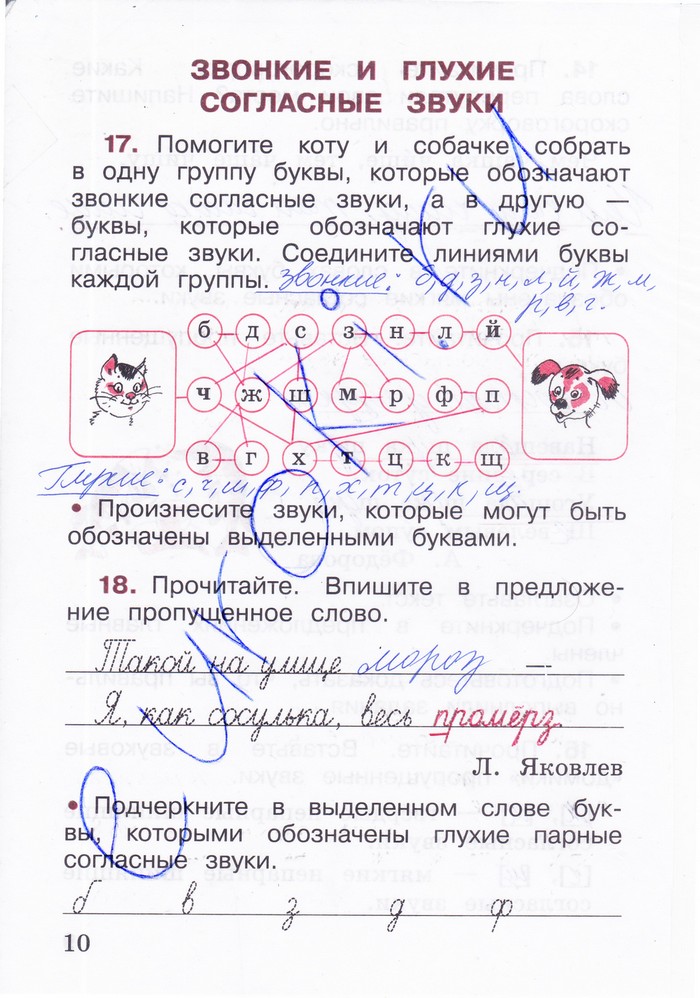 ЗВОНКИЕ И ГЛУХИЕ
СОГЛАСНЫЕ ЗВУКИ
17. Помогите коту и собачке собрать
в одну группу буквы, которые обозначают
звонкие согласные звуки, а в другую —
буквы, которые обозначают глухие со-
гласные звуки. Соедините линиями буквы
каждой группы. звонкие: б, д, з, н, л, й, ж, м,
р, в, г.
б д с з н л й
ч ж ш м р ф п
в г х т ц к щ
Глухие: с, ч, ш, ф, п, х, т, ц, к, щ.
• Произнесите звуки, которые могут быть
обозначены выделенными буквами.
18. Прочитайте. Впишите в предложе-
ние пропущенное слово.
Такой на улице мороз —
Я, как сосулька, весь промерз
Л. Яковлев
• Подчеркните в выделенном слове бук-
вы, которыми обозначены глухие парные
согласные звуки.
б в з д ф
10